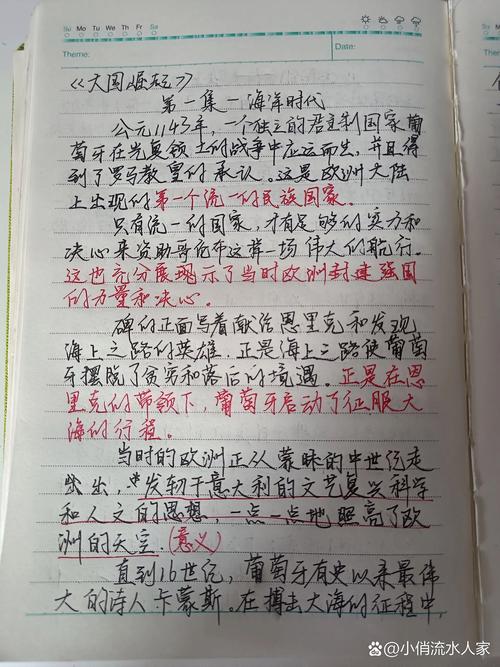 Su Mo Tu We Th Fr Sa
Theme:
Date:
《大国崛起》
第一集－海洋时代
公元1143年，一个独立的君主制国家葡
萄牙在光复领土的战争中应运而生，并且得
到了罗马教皇的承认。这是欧洲大陆
上出现的第一个统一的民族国家。
只有统一的国家，才有足够的实力和
决心来资助哥伦布这样一场伟大的航行。
这也充分展现示了当时欧洲封建强国
的力量和决心。
碑的正面写着献给恩里克和发现
海上之路的英雄．正是海上之路使葡萄
牙摆脱了贫穷和落后的境遇。正是在恩
里克的带领下，葡萄牙启动了征服大
海的行程。
当时的欧洲正从蒙昧的中世纪走
出，*发轫于意大利的文艺复兴科学
和人文的思想，一点一点地照亮了欧
洲的天空．(意义)
直到16世纪，葡萄牙有史以来最伟
大的诗人卡蒙斯。在搏击大海的征程中，
@小俏流水人家